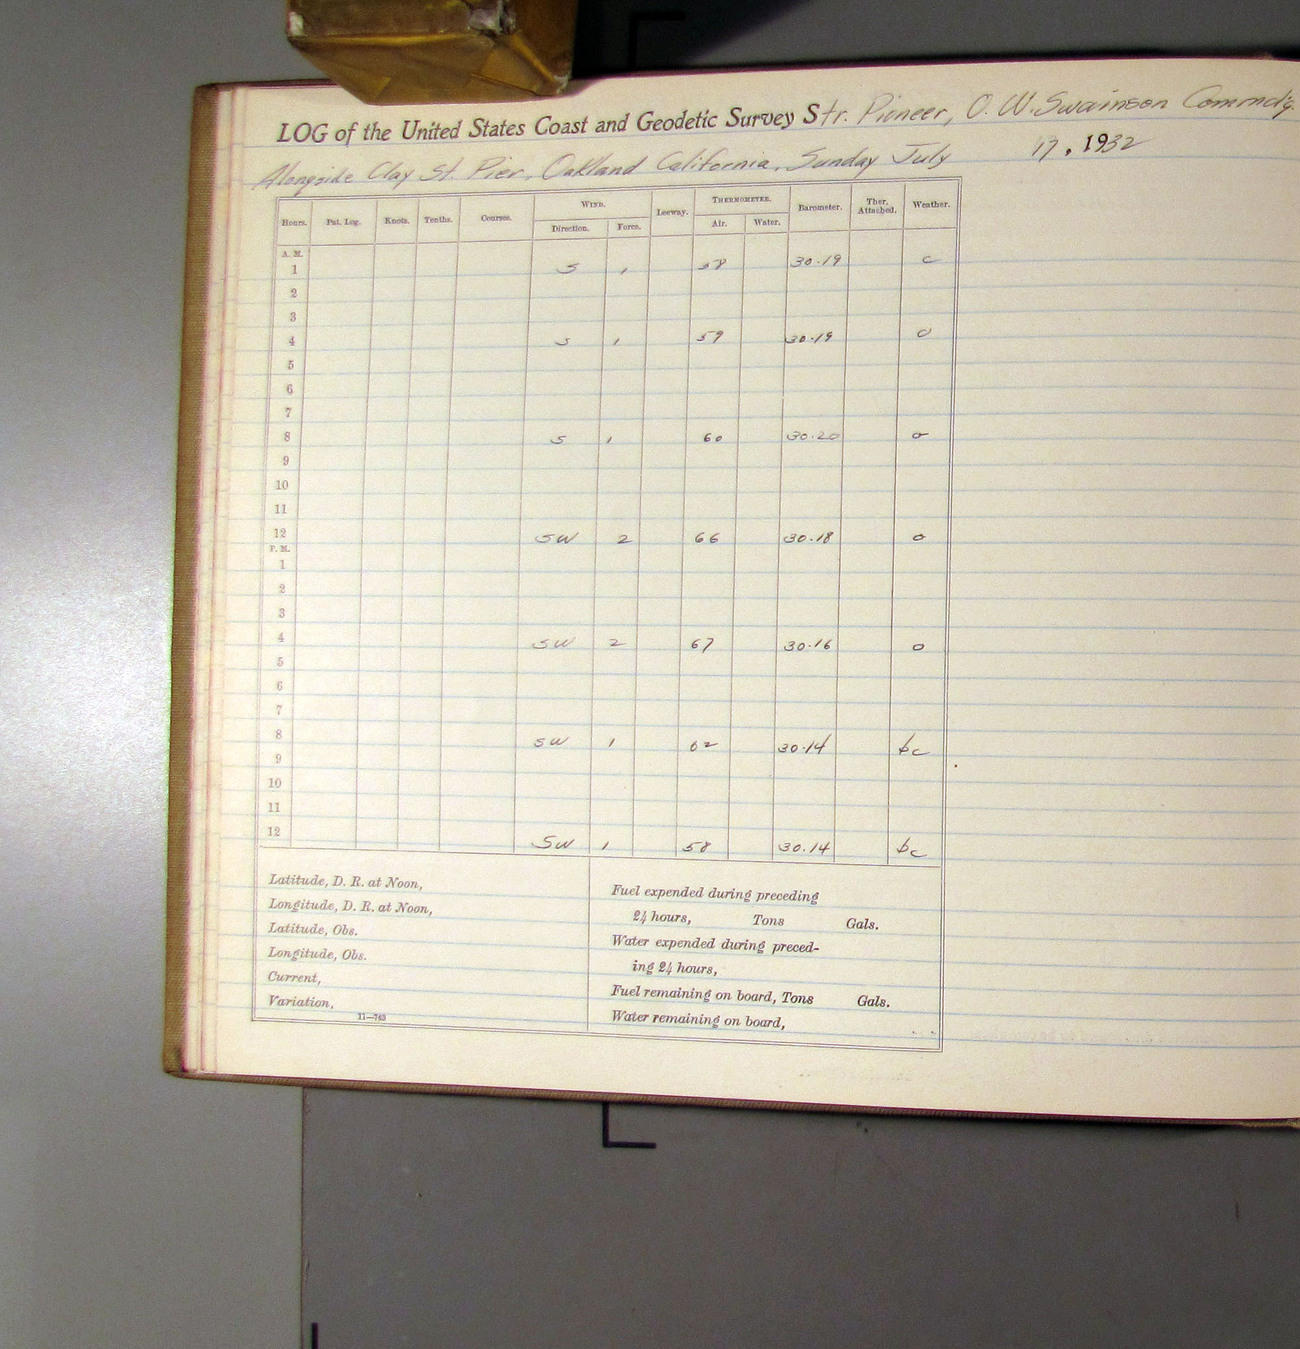 LOG of the United States Coast and Geodetic Survey Str. Pioneer, O. W. Swainson Commd'g.
Alongside Clay St. Pier, Oakland California, Sunday July 17, 1932
Hours. Pat. Log. Knots. Tenths. Courses. Wind. Leeway. Thermometer. Barometer. Ther. Attached. Weather.
Direction. Force. Air. Water.
A. M.
1 S 1 58 30.19 c
2
3
4 S 1 59 30.19 o
5
6
7
8 S 1 60 30.20 o
9
10
11
12 SW 2 66 30.18 o
P. M.
1
2
3
4 SW 2 67 30.16 o
5
6
7
8 SW 1 62 30.14 bc
9
10
11
12 SW 1 58 30.14 bc
Latitude, D. R. at Noon,
Longitude, D. R. at Noon,
Latitude, Obs.
Longitude, Obs.
Current,
Variation,
11—763
Fuel expended during preceding
24 hours, Tons Gals.
Water expended during preced-
ing 24 hours,
Fuel remaining on board, Tons Gals.
Water remaining on board,